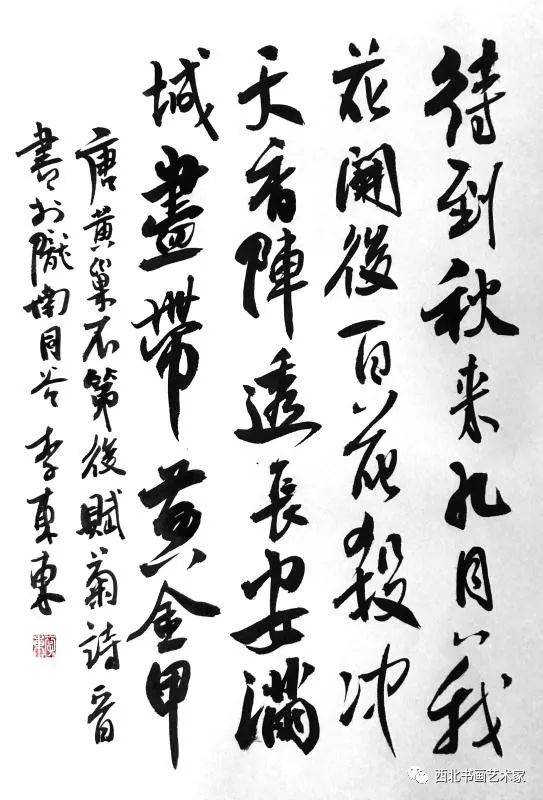 待到秋来九月八我
花開後百花殺冲
天香陣透長安滿
城盡帶黄金甲
唐黄巢不第後賦菊詩
書於隴南同谷李東東
西北书画艺术家